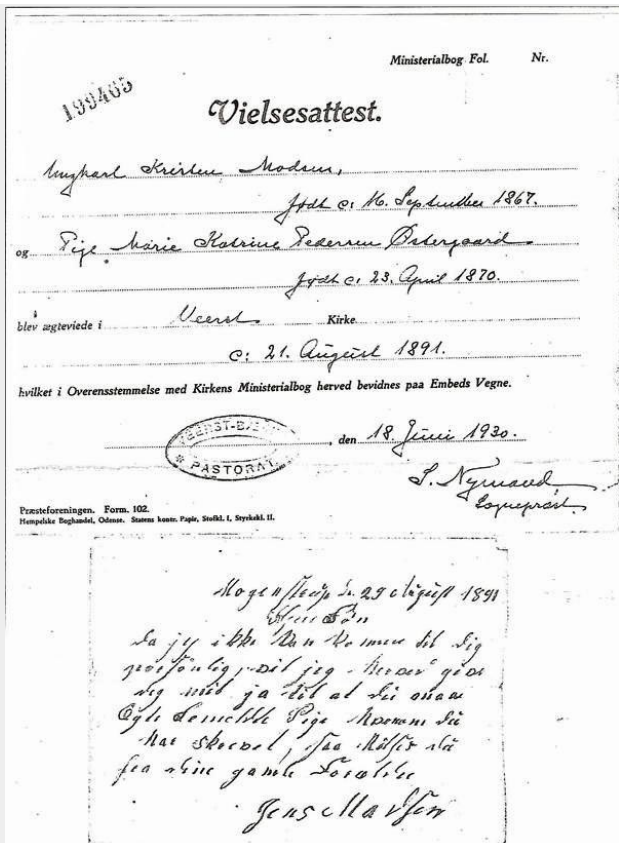 Ministerialbog Fol. Nr.
199465
Vielsesattest.
Ungkarl Kristen Madsen,
født d: 16. September 1867.
og Pige Marie Katrine Pedersen Østergaard
født d: 23. April 1870.
blev ægteviede i Veerst Kirke
d: 21. August 1891.
hvilket i Overensstemmelse med Kirkens Ministerialbog herved bevidnes paa Embeds Vegne.
VEERST-BÆKKE
PASTORAT
, den 18. Juni 1930.
S. Nymand
Sognepræst
Præsteforeningen. Form. 102.
Hempelske Boghandel, Odense. Statens kontr. Papir, Stofkl. I, Styrkekl. II.
Mogenstrup d. 29 August 1891
Søn
da jeg ikke kan komme til dig
personlig, vil jeg herved give
dig mit ja til at du maa
Ægte Pige du
har skrevet, saa du
fra dine gamle Forældre
Jens Madsen